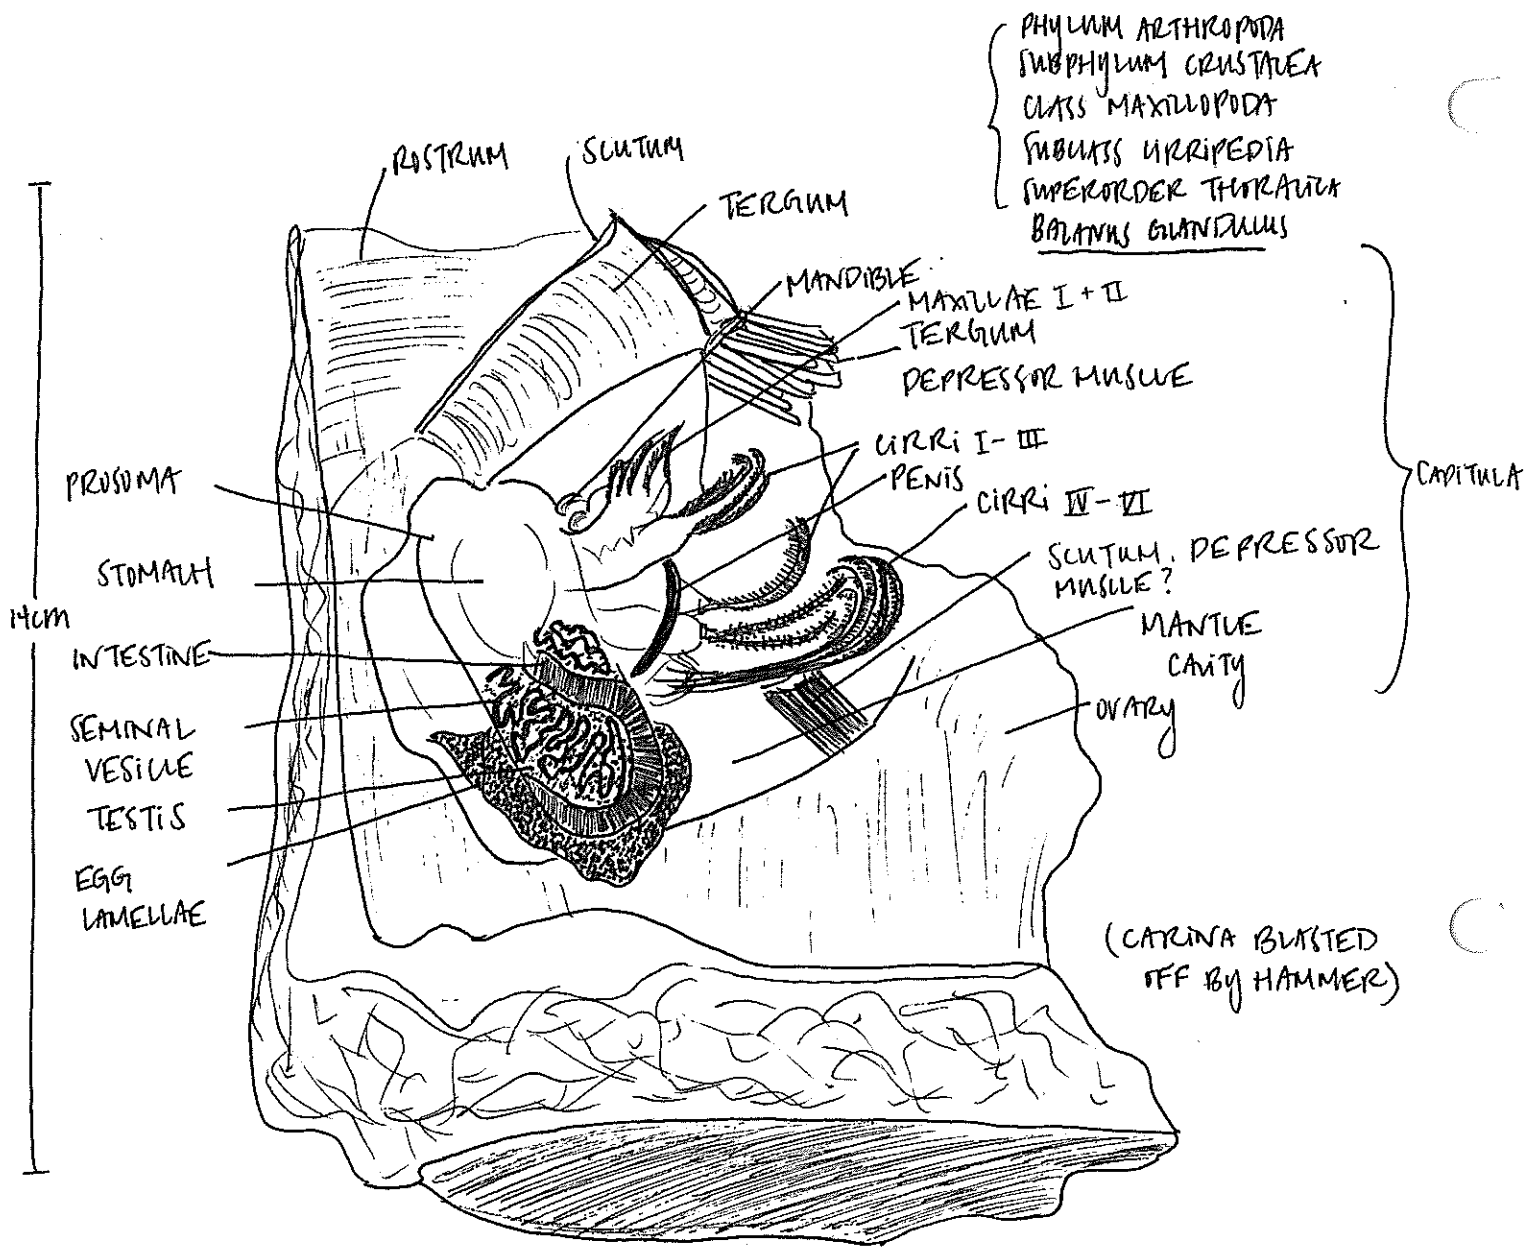 PHYLUM ARTHROPODA
SUBPHYLUM CRUSTACEA
CLASS MAXILLOPODA
SUBCLASS CIRRIPEDIA
SUPERORDER THORACICA
BALANUS GLANDULUS
ROSTRUM
SCUTUM
TERGUM
MANDIBLE
MAXILLAE I + II
TERGUM
DEPRESSOR MUSCLE
CIRRI I - III
PENIS
CIRRI IV - VI
SCUTUM. DEPRESSOR
MUSCLE?
MANTLE
CAVITY
OVARY
CAPITULA
PROSOMA
STOMACH
14cm
INTESTINE
SEMINAL
VESICLE
TESTIS
EGG
LAMELLAE
(CARINA BLASTED
OFF BY HAMMER)